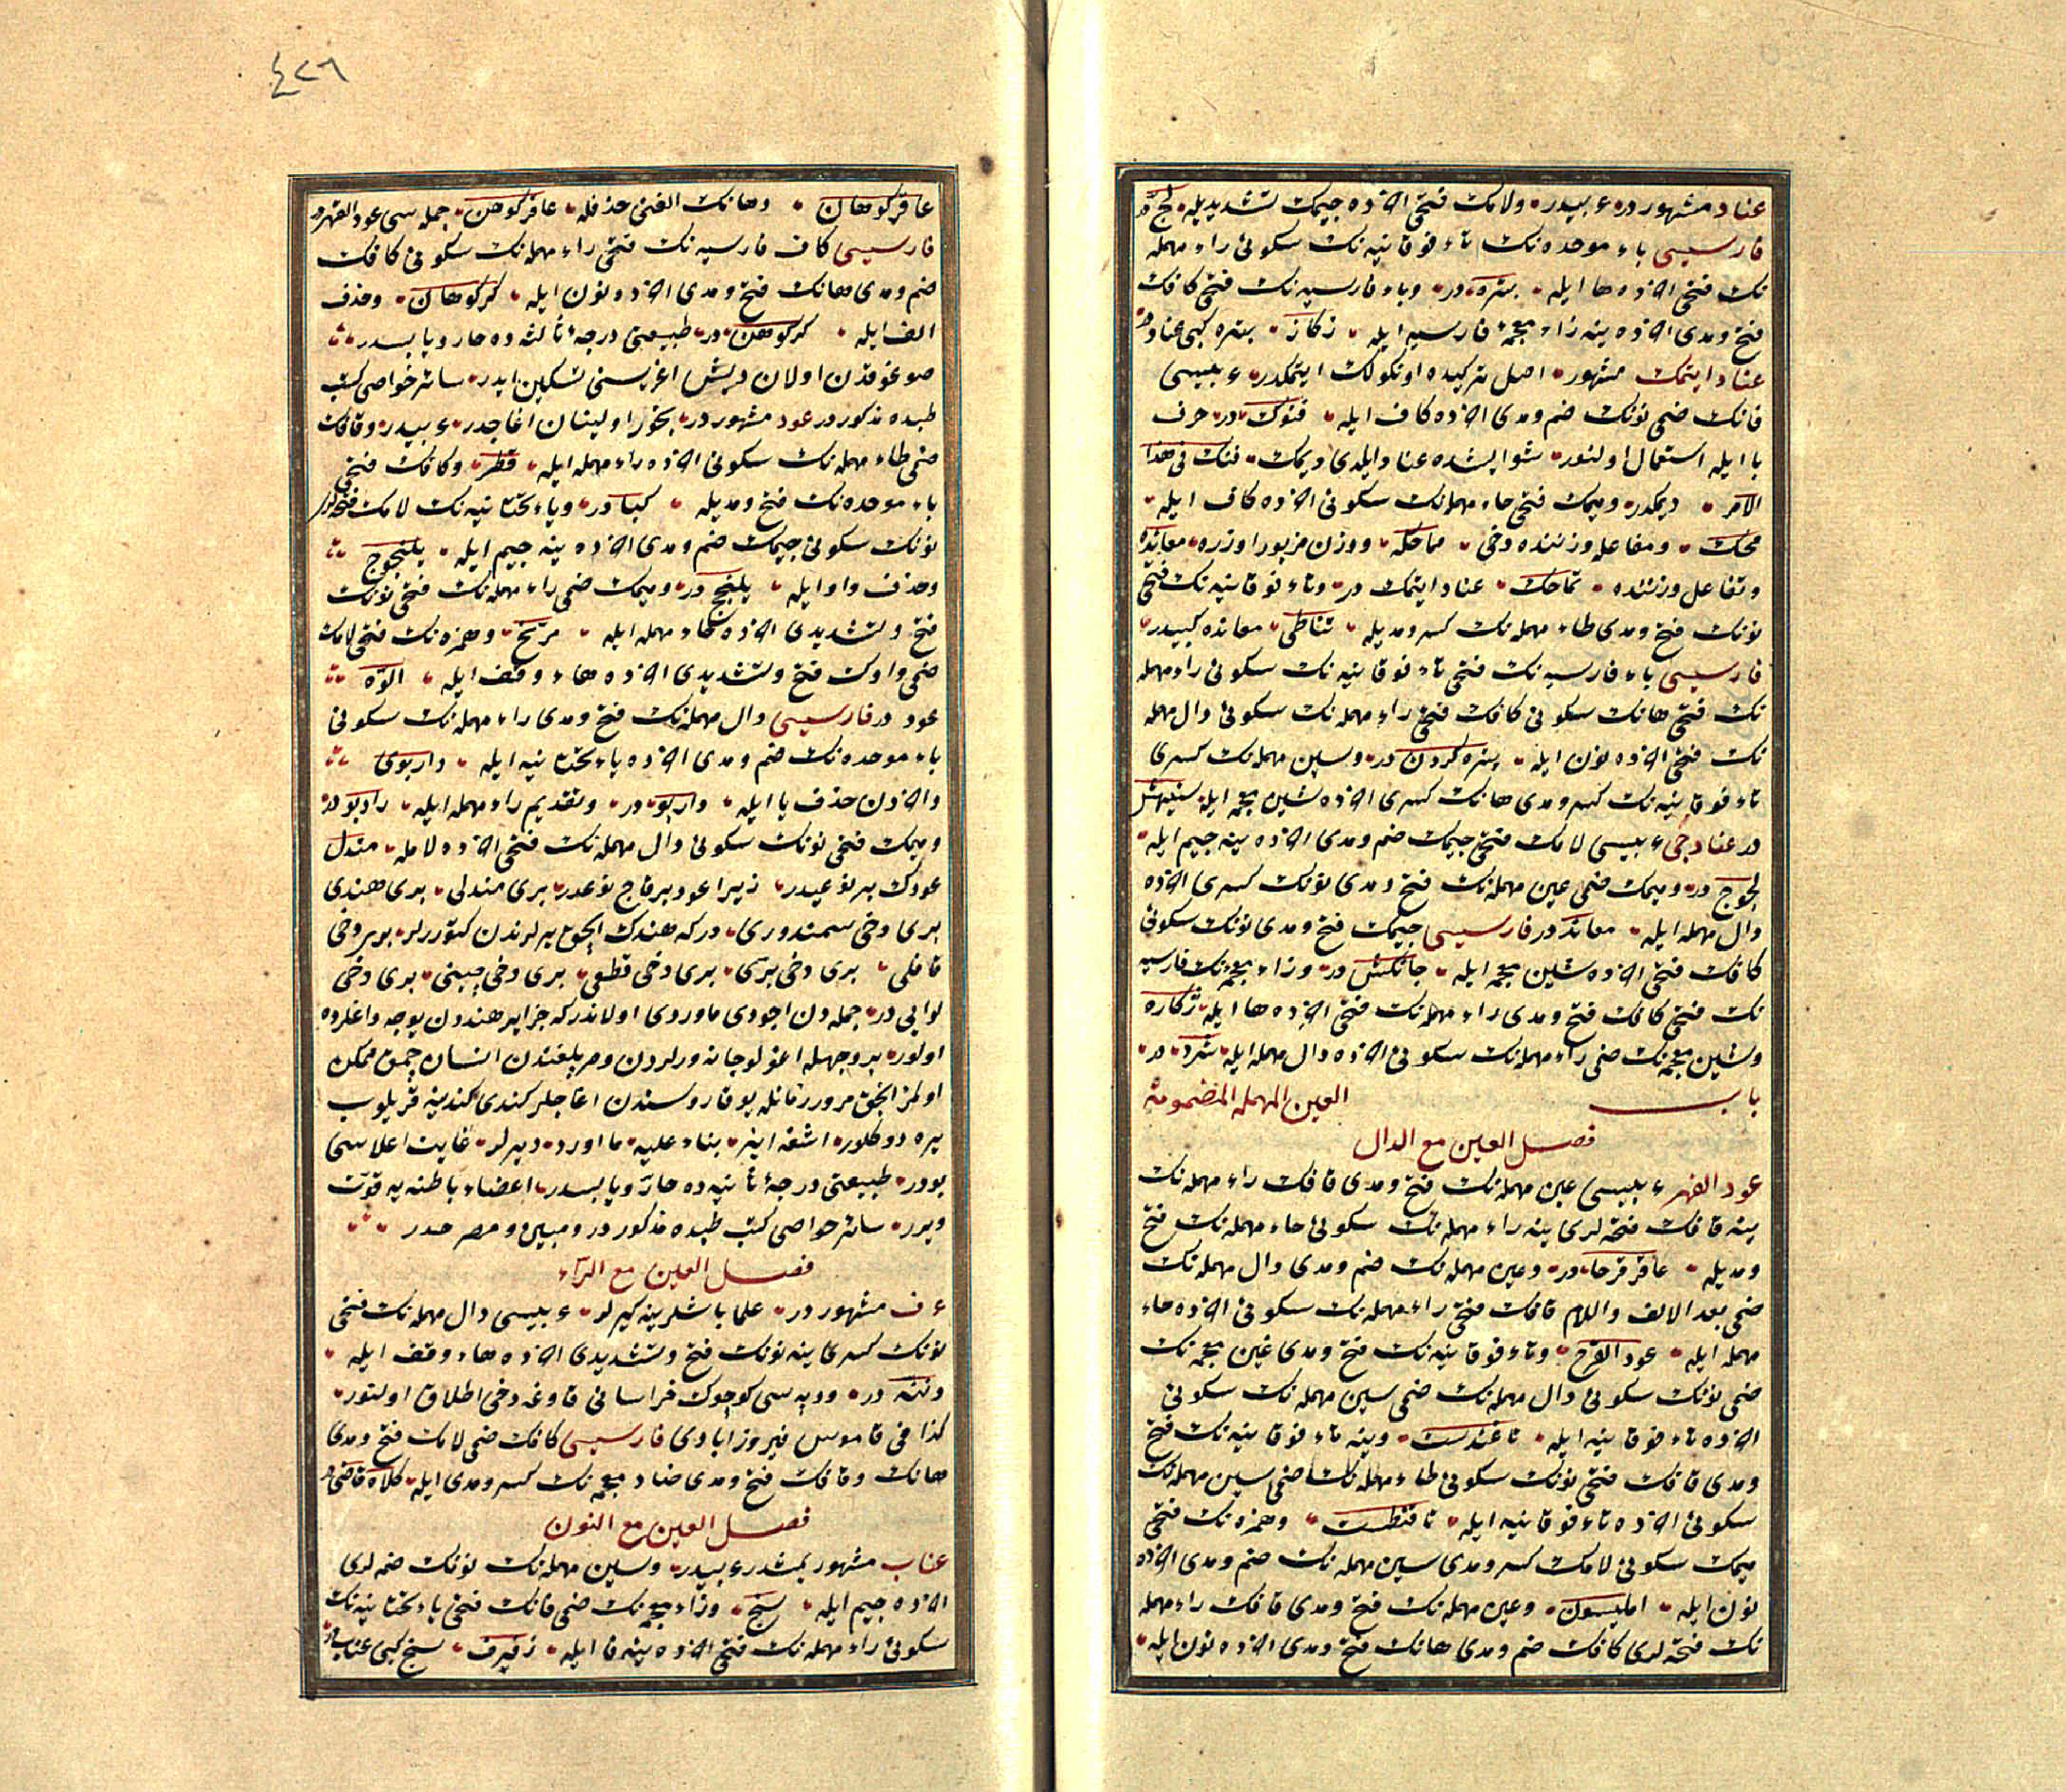 عناد مشهوردر ع بیدر ولامك فتحی آخرده جیمك تشدیدیله لج در
فارسیسی باء موحده نك تاء فوقانیه نك سكونی راء مهمله
نك فتحی آخرده ها ایله بتره در وباء فارسیه نك فتحی كافك
فتح ومدی آخرده ینه زاء معجمۀ فارسیه ایله زكاز بتره كبی عناد در
عناد ایتمك مشهور اصل تركیبده اونكولك ایتمكدر ع بیسی
فانك ضمی نونك ضم ومدی آخرده كاف ایله فنوك در حرف
با ایله استعمال اولنور شوایشده عناد ایلدی دیمك فنك فی هذا
الامر دیمكدر ومیمك فتحی حاء مهمله نك سكونی آخرده كاف ایله
محك ومفاعله وزننده دخی مماحكه ووزن مزبور اوزره معانده
وتفاعل وزننده تماحك عناد ایتمك در وتاء فوقانیه نك فتحی
نونك فتح ومدی طاء مهمله نك كسر ومدیله تناطی معانده كبیدر
فارسیسی باء فارسیه نك فتحی تاء فوقانیه نك سكونی راء مهمله
نك فتحی هانك سكونی كافك فتحی راء مهمله نك سكونی دال مهمله
نك فتحی آخرده نون ایله پتره كردن در وسین مهمله نك كسری
تاء فوقانیه نك كسر ومدی هانك كسری آخرده شین معجمه ایله ستیهش
در عنادجی ع بیسی لامك فتحی جیمك ضم ومدی آخرده ینه جیم ایله
لجوج در ومیمك ضمی عین مهمله نك فتح ومدی نونك كسری آخرده
دال مهمله ایله معاند در فارسیسی جیمك فتح ومدی نونك سكونی
كافك فتحی آخرده شین معجمه ایله جانكش در وزاء معجمۀ فارسیه
نك فتحی كافك فتح ومدی راء مهمله نك فتحی آخرده ها ایله زكاره
وشین معجمه نك ضمی راء مهمله نك سكونی آخرده دال مهمله ایله شرد در
باب العین المهمله المضمومة
فصل العین مع الدال
عود القهر ع بیسی عین مهمله نك فتح ومدی قافك راء مهمله نك
ینه قافك فتحه لری ینه راء مهمله نك سكونی حاء مهمله نك فتح
ومدیله عاقرقرحا در وعین مهمله نك ضم ومدی دال مهمله نك
ضمی بعد الالف واللام قافك فتحی راء مهمله نك سكونی آخرده حاء
مهمله ایله عود القرح وتاء فوقانیه نك فتح ومدی غین معجمه نك
ضمی نونك سكونی دال مهمله نك ضمی سین مهمله نك سكونی
آخرده تاء فوقانیه ایله تاغندست وینه تاء فوقانیه نك فتح
ومدی قافك فتحی نونك سكونی طاء مهمله نك ضمی سین مهمله نك
سكونی آخرده تاء فوقانیه ایله تاقنطست وهمزه نك فتحی
میمك سكونی لامك كسر ومدی سین مهمله نك ضم ومدی آخرده
نون ایله املیسون وعین مهمله نك فتح ومدی قافك راء مهمله
نك فتحه لری كافك ضم ومدی هانك فتح ومدی آخرده نون ایله
٤٢٦
عاقركوهان وهانك الفنی حذفله عاقركوهن جمله سی عود القهر در
فارسیسی كاف فارسیه نك فتحی راء مهمله نك سكونی كافك
ضم ومدی هانك فتح ومدی آخرده نون ایله كركوهان وحذف
الف ایله كركوهن در طبیعتی درجۀ ثالثه ده حار ویابسدر
صوغوقدن اولان دیش اغریسنی تسكین ایدر سائر خواصی كتب
طبده مذكوردر عود مشهوردر بخور اولینان اغاجدر ع بیدر وقافك
ضمی طاء مهمله نك سكونی آخرده راء مهمله ایله قطر وكافك فتحی
باء موحده نك فتح ومدیله كبا در ویاء تحتانیه نك لامك فتحه لری
نونك سكونی جیمك ضم ومدی آخرده ینه جیم ایله یلنجوج
وحذف واو ایله یلنجج در ومیمك ضمی راء مهمله نك فتحی نونك
فتح وتشدیدی آخرده حاء مهمله ایله مرنح وهمزه نك فتحی لامك
ضمی واوك فتح وتشدیدی آخرده هاء وقف ایله الوّه
عود در فارسیسی دال مهمله نك فتح ومدی راء مهمله نك سكونی
باء موحده نك ضم ومدی آخرده یاء تحتانیه ایله داربوی
وآخردن حذف یا ایله داربو در وتقدیم راء مهمله ایله رادبو در
ومیمك فتحی نونك سكونی دال مهمله نك فتحی آخرده لامله مندل
عودك بر نوعیدر زیرا عود برقاچ نوعدر بری مندلی بری هندی
بری دخی سمندوری در كه هندك ایچی یرلرندن كتوررلر بریر دخی
قاقلی بری دخی بری بری دخی قطعی بری دخی چینی بری دخی
لوابی در جمله دن اجودی ماوردی اولاندر كه جزایر هندن بوجه داغلرده
اولور بر وجهله اغولو جانه ورلردن وصرپلغندن انسان چقمق ممكن
اولمز انجق مرور زمانله بوقاروسندن اغاجلر كندی كندینه قریلوب
یره دوكلور اشغه اینر بناء علیه ما اورد دیرلر غایت اعلاسی
بودر طبیعتی درجۀ ثانیه ده حارّ ویابسدر اعضاء باطنه یه قوّت
ویرر سائر خواصی كتب طبده مذكوردر ومبین ومصرحدر
فصل العین مع الرآء
ع ف مشهوردر علما باشلرینه كیرلر ع بیسی دال مهمله نك فتحی
نونك كسری ینه نونك فتح وتشدیدی آخرده هاء وقف ایله
دننه در ودبه سی كوچوك خراسانی قاوغه دخی اطلاق اولنور
كذا فی قاموس فیروزابادی فارسیسی كافك ضمی لامك فتح ومدی
هانك وقافك فتح ومدی ضاد معجمه نك كسر ومدی ایله كلاه قاضی در
فصل العین مع النون
عناب مشهور یمشدر ع بیدر وسین مهمله نك نونك ضمه لری
آخرده جیم ایله سنج وزاء معجمه نك ضمی فانك فتحی یاء تحتانیه نك
سكونی راء مهمله نك فتحی آخرده ینه فا ایله زفیرف سنج كبی عناب در